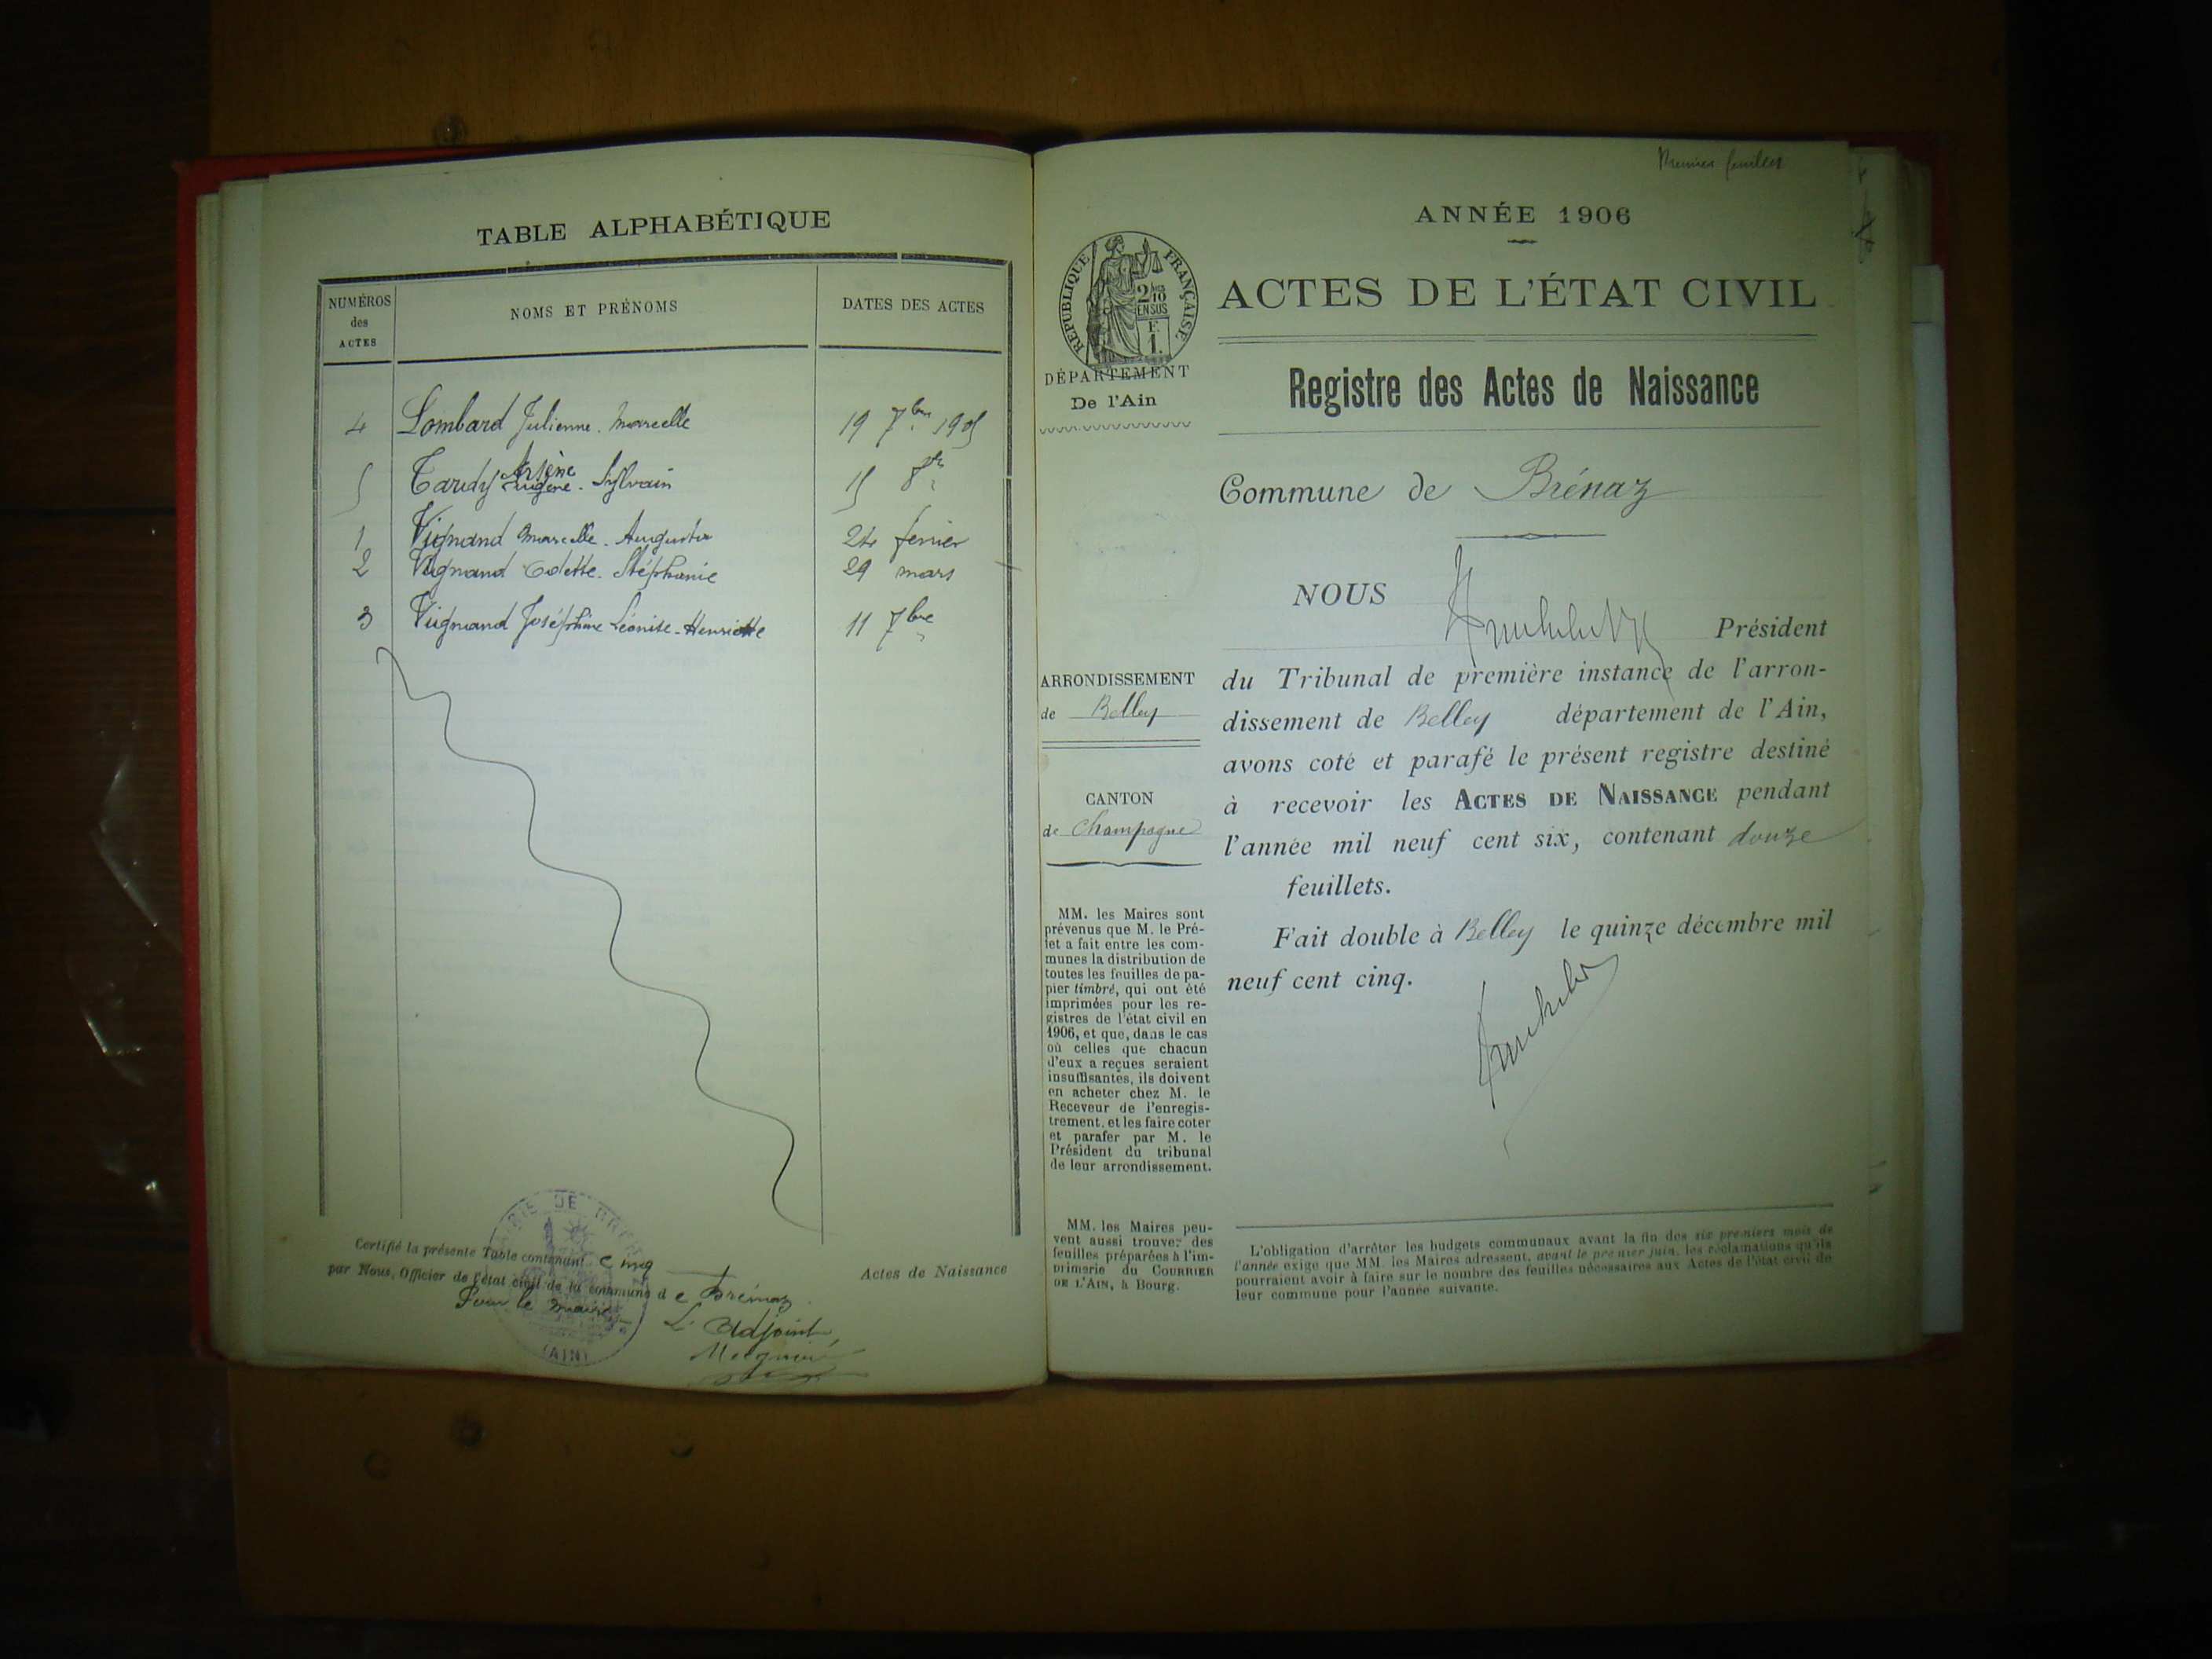 TABLE ALPHABÉTIQUE
NUMÉROS
des
ACTES
NOMS ET PRÉNOMS
DATES DES ACTES
4 Lombard Julienne. Marcelle 19 7bre 1905
5 Tardy Arsène Eugène. Sylvain 15 8bre
1 Vignand Marcelle. Augusta 24 février
2 Vignand Odette. Stéphanie 29 mars
3 Vignand Joséphine Léonise-Henriette 11 7bre
Certifié la présente Table contenant cinq
par Nous, Officier de l'état civil de la commune de Brénaz
Pour le maire
L'Adjoint,
MAIRIE DE BRÉNAZ
(AIN)
Actes de Naissance
Premier feuillet
ANNÉE 1906
RÉPUBLIQUE FRANÇAISE
2/10
EN SUS
F.
1.
ACTES DE L'ÉTAT CIVIL
DÉPARTEMENT
De l'Ain
Registre des Actes de Naissance
Commune de Brénaz
NOUS
Président
du Tribunal de première instance de l'arron-
dissement de Belley département de l'Ain,
avons coté et parafé le présent registre destiné
à recevoir les ACTES DE NAISSANCE pendant
l'année mil neuf cent six, contenant douze
feuillets.
Fait double à Belley le quinze décembre mil
neuf cent cinq.
ARRONDISSEMENT
de Belley
CANTON
de Champagne
MM. les Maires sont
prévenus que M. le Pré-
fet a fait entre les com-
munes la distribution de
toutes les feuilles de pa-
pier timbré, qui ont été
imprimées pour les re-
gistres de l'état civil en
1906, et que, dans le cas
où celles que chacun
d'eux a reçues seraient
insuffisantes, ils doivent
en acheter chez M. le
Receveur de l'enregis-
trement, et les faire coter
et parafer par M. le
Président du tribunal
de leur arrondissement.
MM. les Maires peu-
vent aussi trouver des
feuilles préparées à l'im-
primerie du COURRIER
DE L'AIN, à Bourg.
L'obligation d'arrêter les budgets communaux avant la fin des six premiers mois de
l'année exige que MM. les Maires adressent, avant le premier juin, les réclamations qu'ils
pourraient avoir à faire sur le nombre des feuilles nécessaires aux Actes de l'état civil de
leur commune pour l'année suivante.